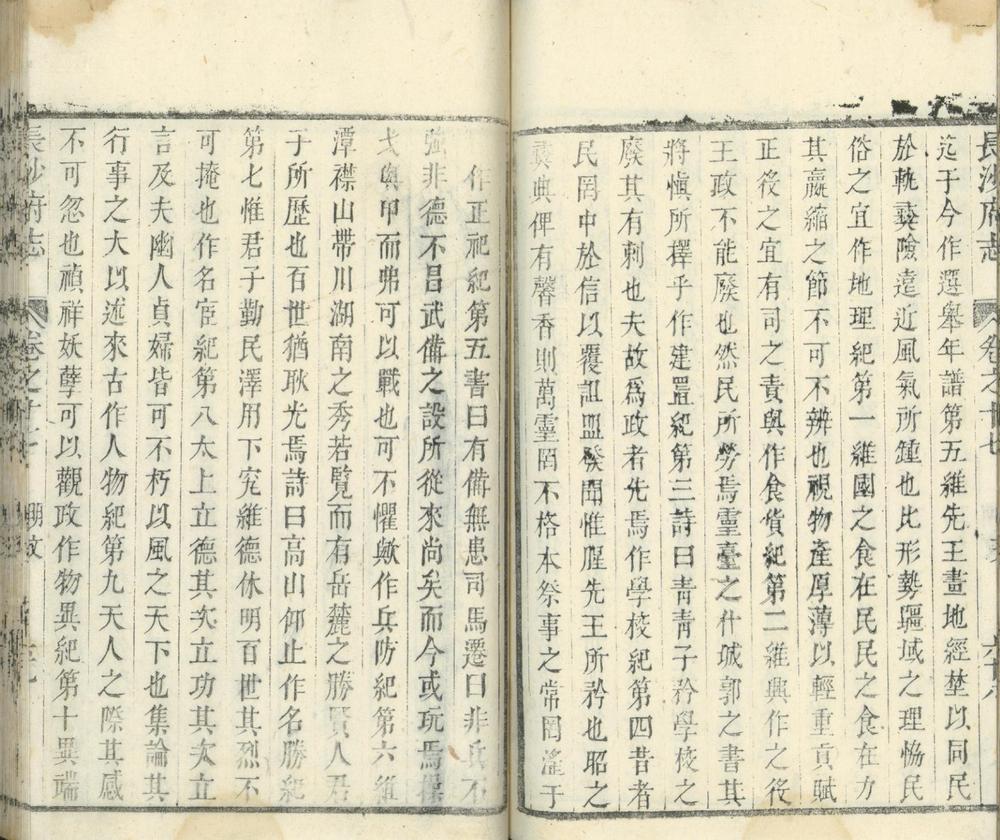 長沙府志 卷之
迄于今作選舉年譜第五維先王畫地經埜以同民
於軌藝險遠近風氣所鍾也比形勢驅域之理恊民
俗之宜作地理紀第一維國之食在民民之食在力
其贏縮之節不可不辨也視物產厚薄以輕重貢賦
正役之宜有司之責與作食貨紀第二維興作之役
王政不能廢也然民所勞焉靈臺之什城郭之書其
將愼所擇乎作建置紀第三詩曰靑靑子衿學校之
廢其有刺也夫故爲政者先焉作學校紀第四昔者
民罔中於信以覆詛盟發聞惟腥先王所矜也昭之
典俾有馨香則萬靈罔不格本祭事之常罔滛于
作正祀紀第五書曰有備無患司馬遷曰非兵不
強非德不昌武備之設所從來尚矣而今或玩焉操
戈與甲而弗可以戰也可不懼歟作兵防紀第六維
潭襟山帶川湖南之秀若覽而有岳麓之勝賢人君
子所歷也百世猶耿光焉詩曰高山仰止作名勝紀
第七惟君子勤民澤用下究維德休明百世其烈不
可掩也作名宦紀第八太上立德其次立功其次立
言及夫幽人貞婦皆可不朽以風之天下也集論其
行事之大以述來古作人物紀第九天人之際其感
不可忽也禎祥妖孽可以觀政作物異紀第十異端
長沙府志 卷之十七 明文